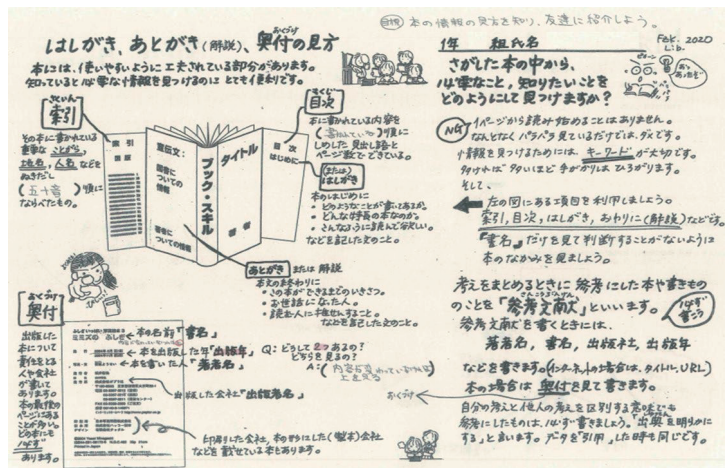 目標 本の情報の見方を知り、友達に紹介しよう。
はしがき、あとがき(解説)、奥付の見方
おくづけ
本には、使いやすいように工夫されている部分があります。
知っていると必要な情報を見つけるのにとても便利です。
さくいん
索引
その本に書かれている
重要な ことがら、
地名、人名 などを
ぬきだし
(五十音)順に
ならべたもの。
索引
宣伝文:
図書に
ついての
情報
著者に
ついての情報
ブック・スキル
タイトル
著者
目次
はじめに
もくじ
目次
本に書かれている内容を
(書かれている)順に
しめした 見出し語と
ページ数でできている。
(または)
はしがき
本のはじめに
・どのようなことが書いてあるか。
・どんな特長の本なのか。
・こんなように読んで欲しい。
などを記した文のこと。
あとがき または 解説
本文の終わりに
・この本ができるまでのいきさつ。
・お世話になった人。
・読む人に推せんすること。
などを記した文のこと。
おくづけ
奥付
出版した
本について
責任をとる
人や会社
が書いて
あります。
本の最後の
ページにある
ことが多い。
どの本にも
必ず
あります。
本の名前「書名」
本を出版した年「出版年」
本を書いた人「著者名」
出版した会社「出版者名」
印刷した会社、本の形にした(製本)会社
などを載せている本もあります。
Q:どうして2つあるの?
どちらを見るの?
1年 組 氏名
Feb. 2020
Lib.
さがした本の中から、
必要なこと、知りたいことを
どのようにして見つけますか?
NG
1ページから読み始めることはありません。
なんとなくパラパラ見ているだけでは、ダメです。
情報を見つけるためには、キーワードが大切です。
多ければ 多いほど 手がかりは ひろがります。
そして、
左の図にある項目を利用しましょう。
索引、目次、はしがき、おわりに(解説)などです。
『書名』だけを見て判断することがないように
本のなかみを見ましょう。
考えをまとめるときに 参考にした本や書きもの
のことを「参考文献」といいます。
さんこうぶんけん
必ず
書こう
参考文献を書くときには、
著者名、書名、出版社、出版年
などを書きます。(インターネットの場合は、タイトル、URL)
おくづけ
本の場合は 奥付を見て書きます。
自分の考えと他人の考えを区別する意味でも
参考にしたものは、必ず書きましょう。「出典を明らかに
する」と言います。データを「引用」した時も同じです。